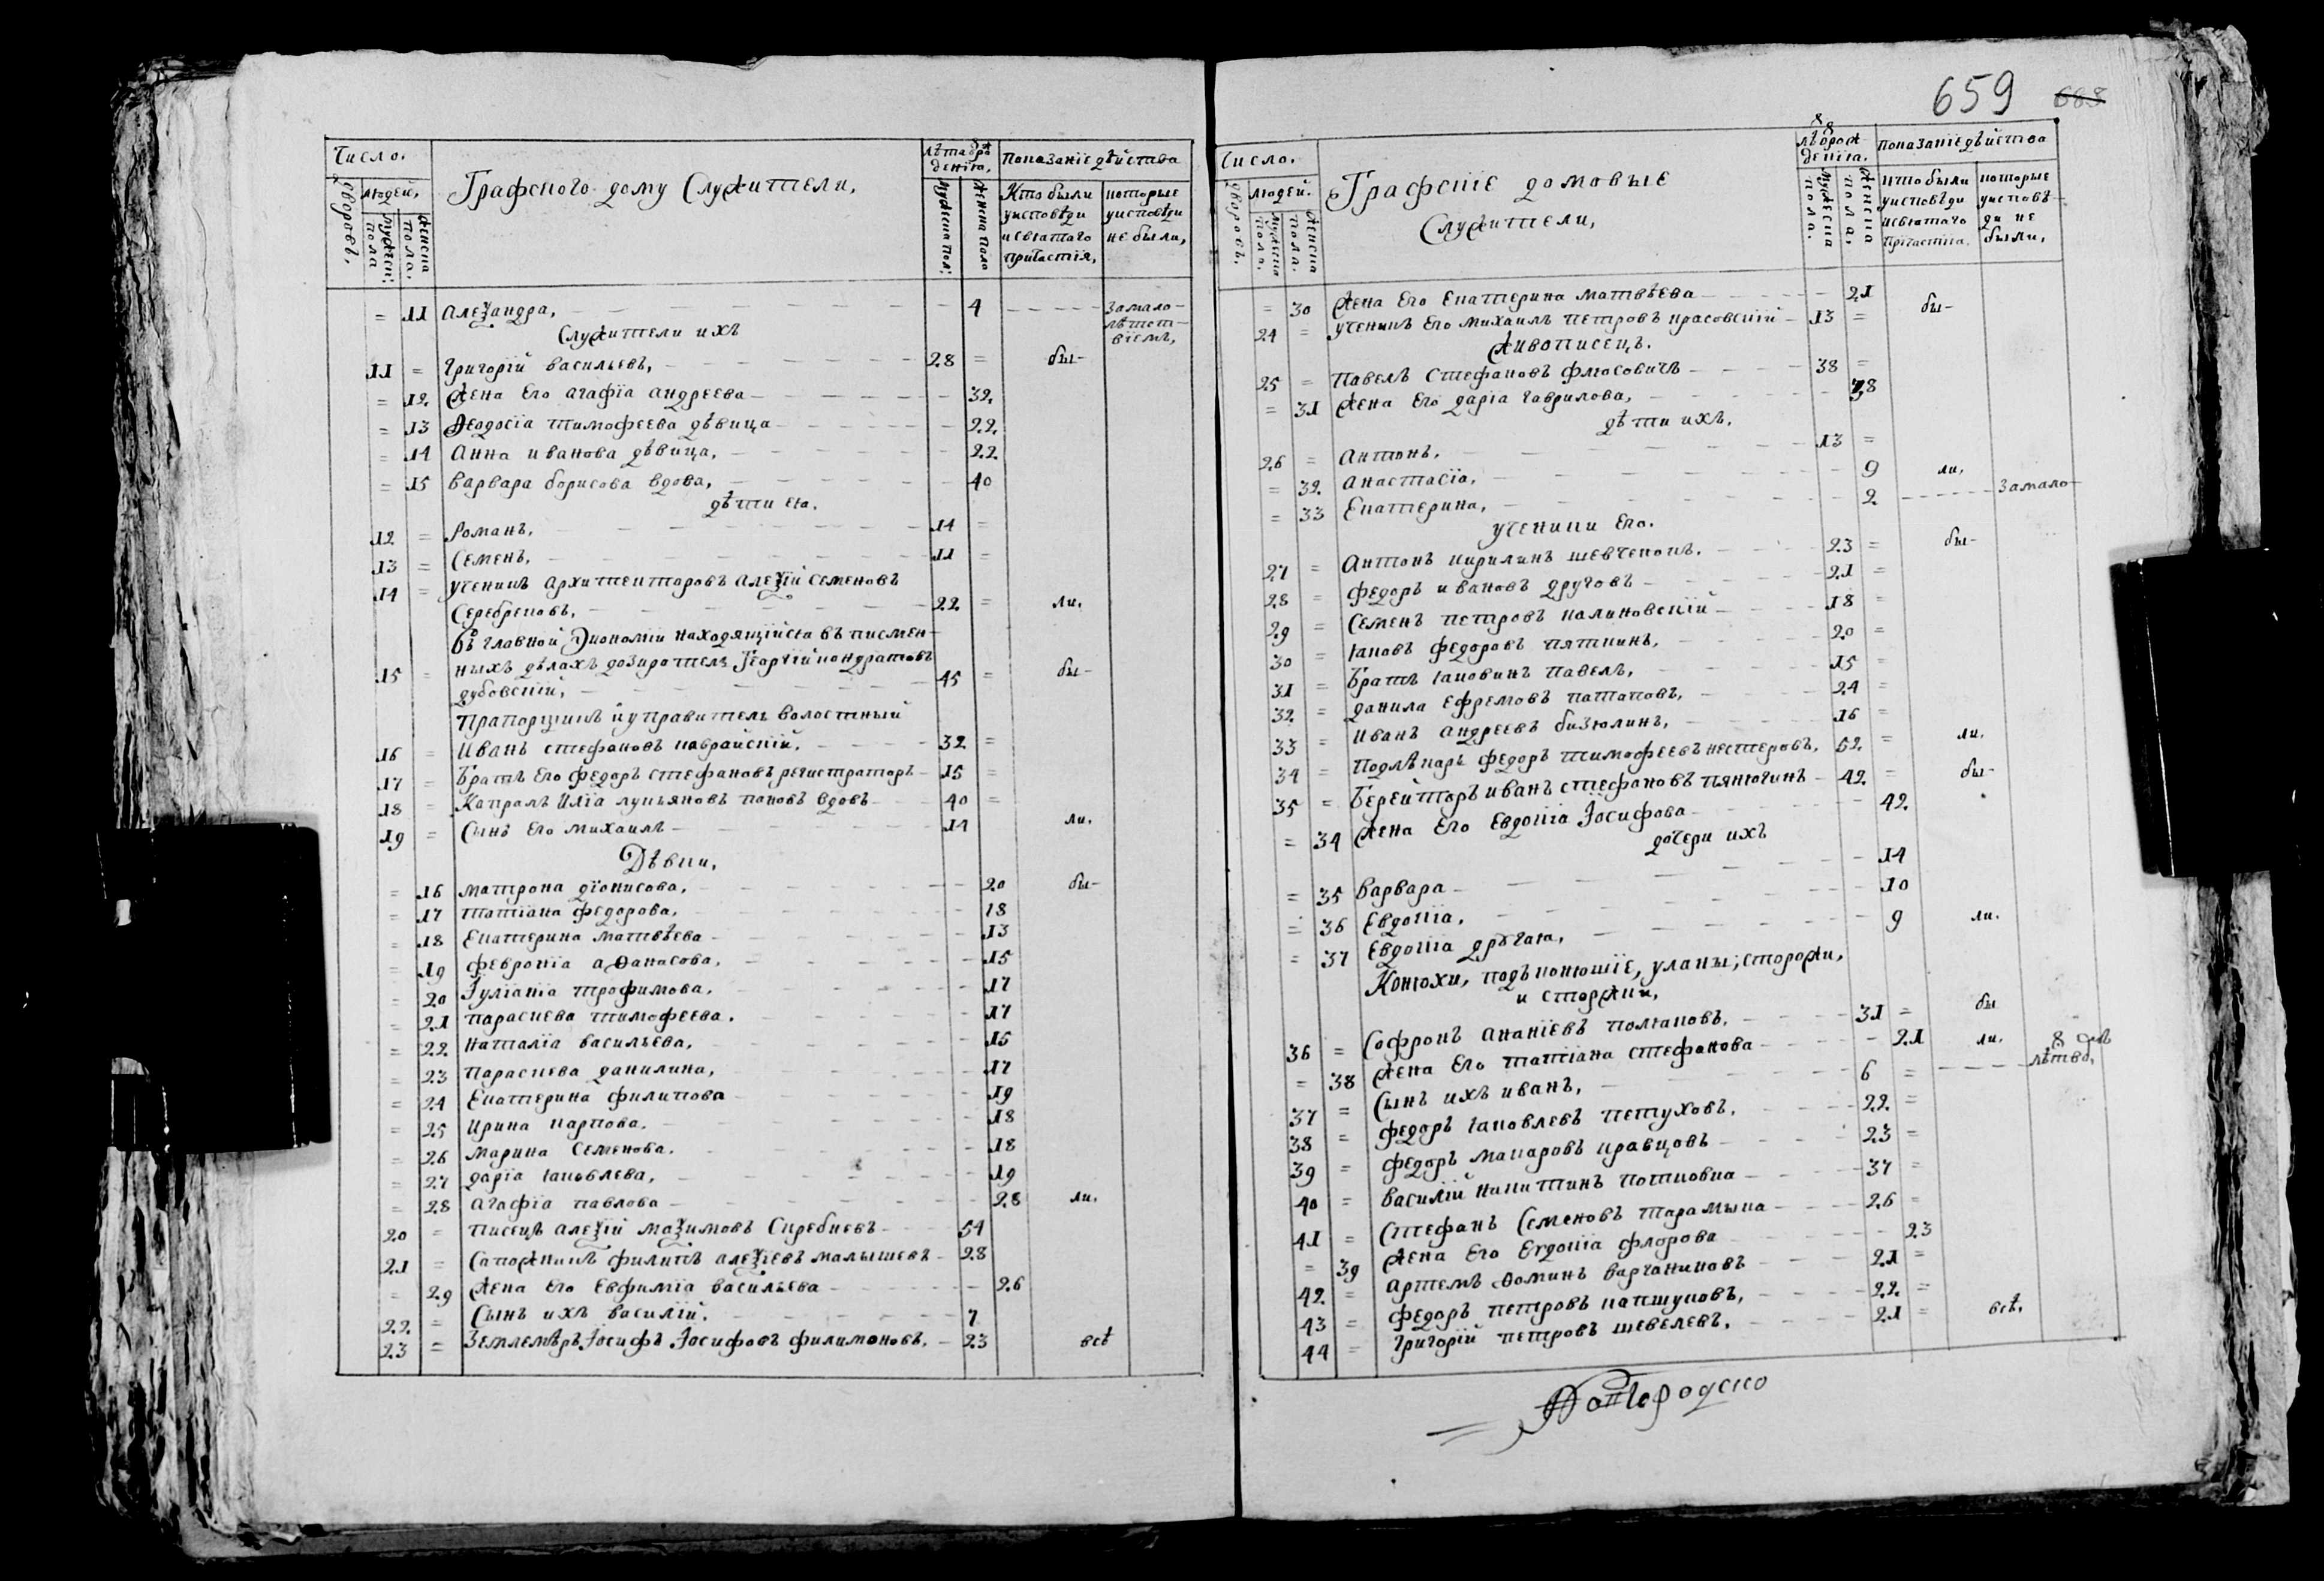 Число.
Дворовъ.
Людей,
Мужеска пола
Женска пола.
Графского дому Служители,
Лѣта рождения.
Мужеска пол:
Женска пола
Показаніе дѣйства
Кто были у исповѣди и святаго причастія,
которые у исповѣди не были,
= 11 Алеѯандра, 4 за мало-
лѣтст-
віемъ,
Служители ихъ
11 = Григорій Васильевъ, 28 = бы-
= 12 Жена Его Агафіа Андреева 32
= 13 Ѳеодосіа Тимофеева дѣвица 22
= 14 Анна Иванова дѣвица, 22
= 15 Варвара Борисова вдова, 40
дѣти ея.
12 = Романъ, 14 =
13 = Семенъ, 11 =
14 = Ученикъ Архитекторовъ Алеѯій Семеновъ
Серебреновъ, 22 = ли.
Въ главной Экономіи находящійся въ писмен-
15 = ныхъ дѣлахъ дозиратель Георгій Кондратовъ
дубовскій, 45 = бы-
Прапорщикъ и управитель Волостный
16 = Иванъ Стефановъ Кабрайскій, 32 =
17 = Братъ Его Федоръ Стефановъ регистраторъ 15 =
18 = Капралъ Иліа Лукьяновъ Поповъ вдовъ 40 =
19 = Сынъ Его Михаилъ 14 ли.
Дѣвки,
= 16 Матрона Діонисова, 20 бы-
= 17 Татіана Федорова, 18
= 18 Екатерина Матвѣева 13
= 19 Февроніа Аѳанасова, 15
= 20 Іуліаніа Трофимова, 17
= 21 Параскева Тимофеева. 17
= 22 Наталіа Васильева, 15
= 23 Параскева Данилина, 17
= 24 Екатерина Филипова 19
= 25 Ирина Карпова. 18
= 26 Марина Семенова. 18
= 27 Даріа Яковлева, 19
= 28 Агафіа Павлова 28 ли.
20 = Писецъ Алеѯій Маѯимовъ Скребневъ 54
21 = Сапожникъ Филипъ Алеѯіевъ Малышевъ 28
= 29 Жена Его Евфиміа Васильева 26
22 = Сынъ ихъ Василій. 7
23 = Землемѣръ Іосифъ Іосифовъ Филимоновъ. 23 всѣ
659
Число.
Дворовъ.
Людей.
Мужеска пола.
Женска пола.
Графскіе домовые
Служители,
Мужеска пола.
Женска пола.
Показаніе дѣйства
Кто были у исповѣди и святаго причастіа.
которые у исповѣ-
ди не были,
= 30 Жена Его Екатерина Матвѣева 21
24 = Ученикъ Его Михаилъ Петровъ Красовскій 13 = бы-
Живописецъ.
25 = Павелъ Стефановъ Флюсовичъ 38 =
= 31 Жена Его Даріа Гаврилова, 38
дѣти ихъ.
26 = Антонъ. 13 =
= 32 Анастасіа, 9 ли.
= 33 Екатерина, 2 замало-
ученики Его.
27 = Антонъ Кирилинъ Шевченокъ. 23 = бы-
28 = Федоръ Ивановъ Друговъ 21 =
29 = Семенъ Петровъ Калиновскій 18 =
30 = Яковъ Федоровъ Пяткинъ, 20 =
31 = Братъ Яковинъ Павелъ, 15 =
32 = Данила Ефремовъ Потаповъ, 24 =
33 = Иванъ Андреевъ Бизюлинъ, 16 =
34 = Подлѣкарь Федоръ Тимофеевъ Нестеровъ, 52 = ли.
35 = Берейторъ Иванъ Стефановъ Пянюгинъ 42 = бы-
= 34 Жена Его Евдокіа Іосифова 42
дочери ихъ
= 35 Варвара 14
= 36 Евдокіа, 10
= 37 Евдокіа другая, 9 ли.
Конюхи, подъконюшіе, уланы, сторожи,
и сторжки,
36 = Софронъ Ананіевъ Полкановъ, 31 = бы
= 38 Жена Его Татіана Стефанова 21 ли.
37 = Сынъ ихъ Иванъ, 6 = лѣтвo,
38 = Федоръ Яковлевъ Петуховъ, 22 =
39 = Федоръ Макаровъ Кравцовъ 23 =
40 = Василій Никитинъ Потиовка 37 =
41 = Стефанъ Семеновъ Тарамыка 26 =
= 39 Жена Его Евдокіа Флорова 23
42 = Артемъ Ѳоминъ Варганиновъ 21 =
43 = Федоръ Петровъ Капшуковъ, 22 =
44 = Григорій Петровъ Шевелевъ, 21 = всѣ.